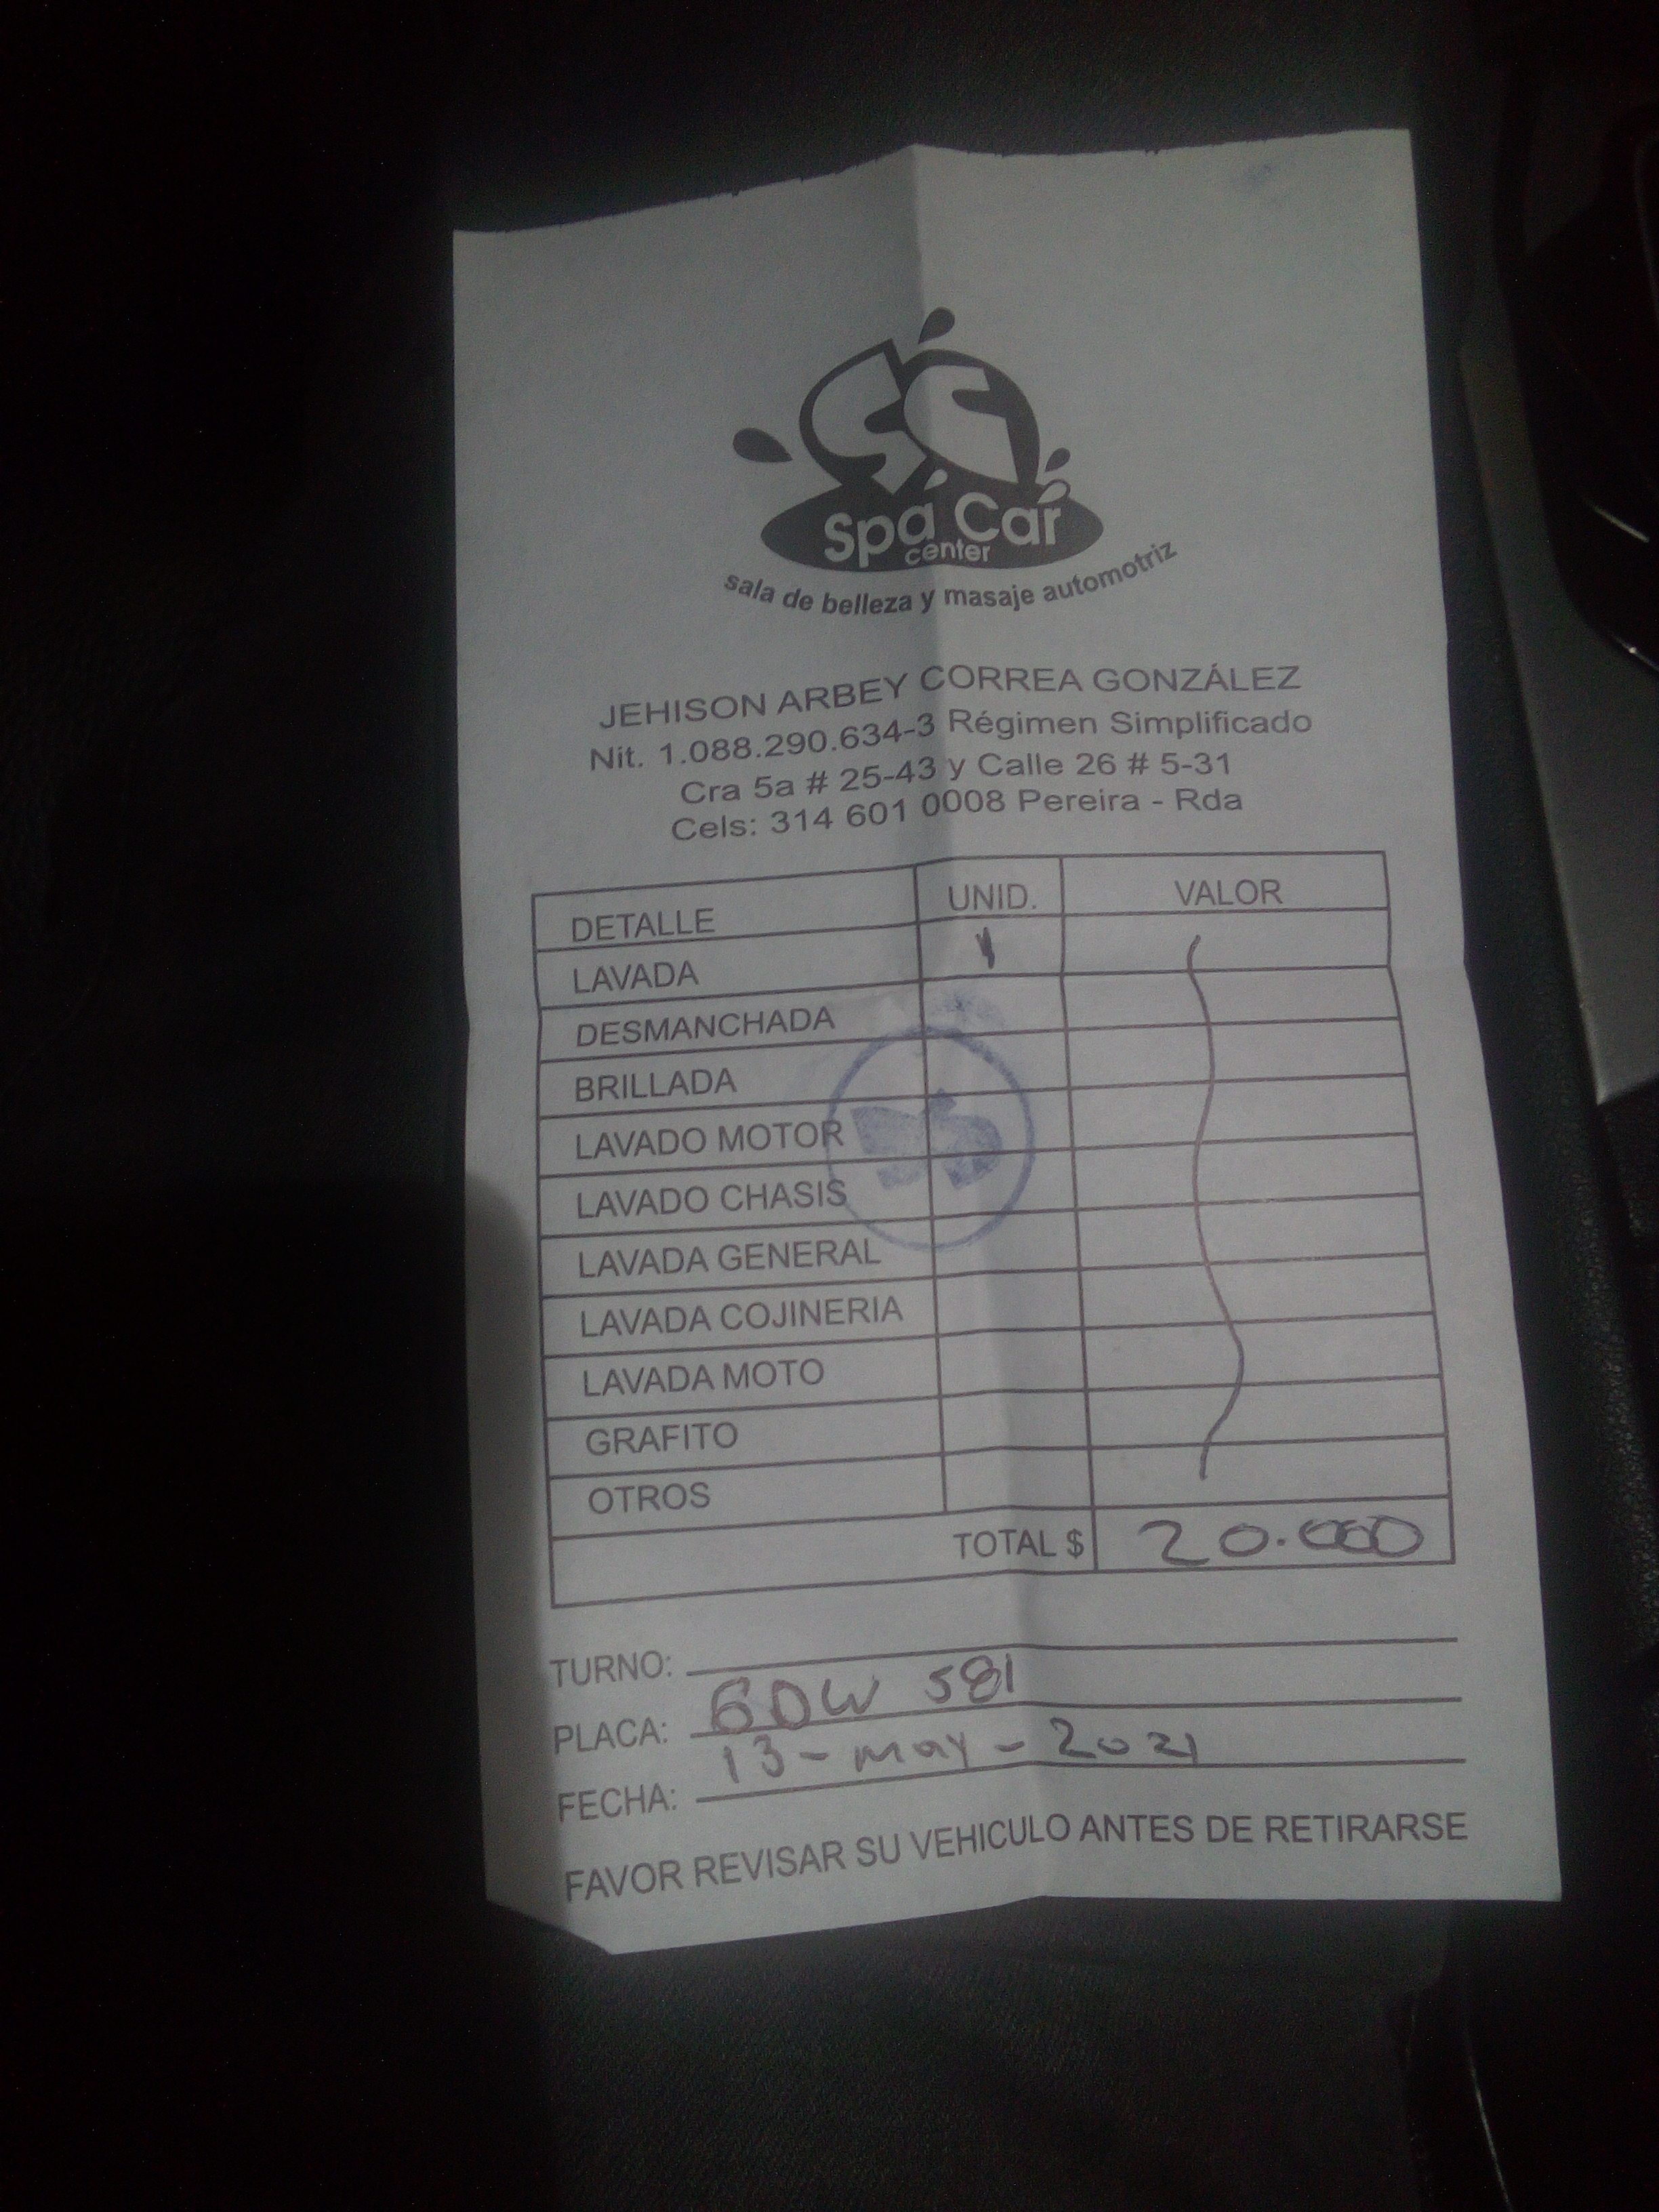 SC
Spa Car
center
sala de belleza y masaje automotriz
JEHISON ARBEY CORREA GONZÁLEZ
Nit. 1.088.290.634-3 Régimen Simplificado
Cra 5a # 25-43 y Calle 26 # 5-31
Cels: 314 601 0008 Pereira - Rda
DETALLE UNID. VALOR
LAVADA 1
DESMANCHADA
BRILLADA
LAVADO MOTOR
LAVADO CHASIS
LAVADA GENERAL
LAVADA COJINERIA
LAVADA MOTO
GRAFITO
OTROS
TOTAL $ 20.000
TURNO:
PLACA: 581
FECHA: 13-may-2021
FAVOR REVISAR SU VEHICULO ANTES DE RETIRARSE